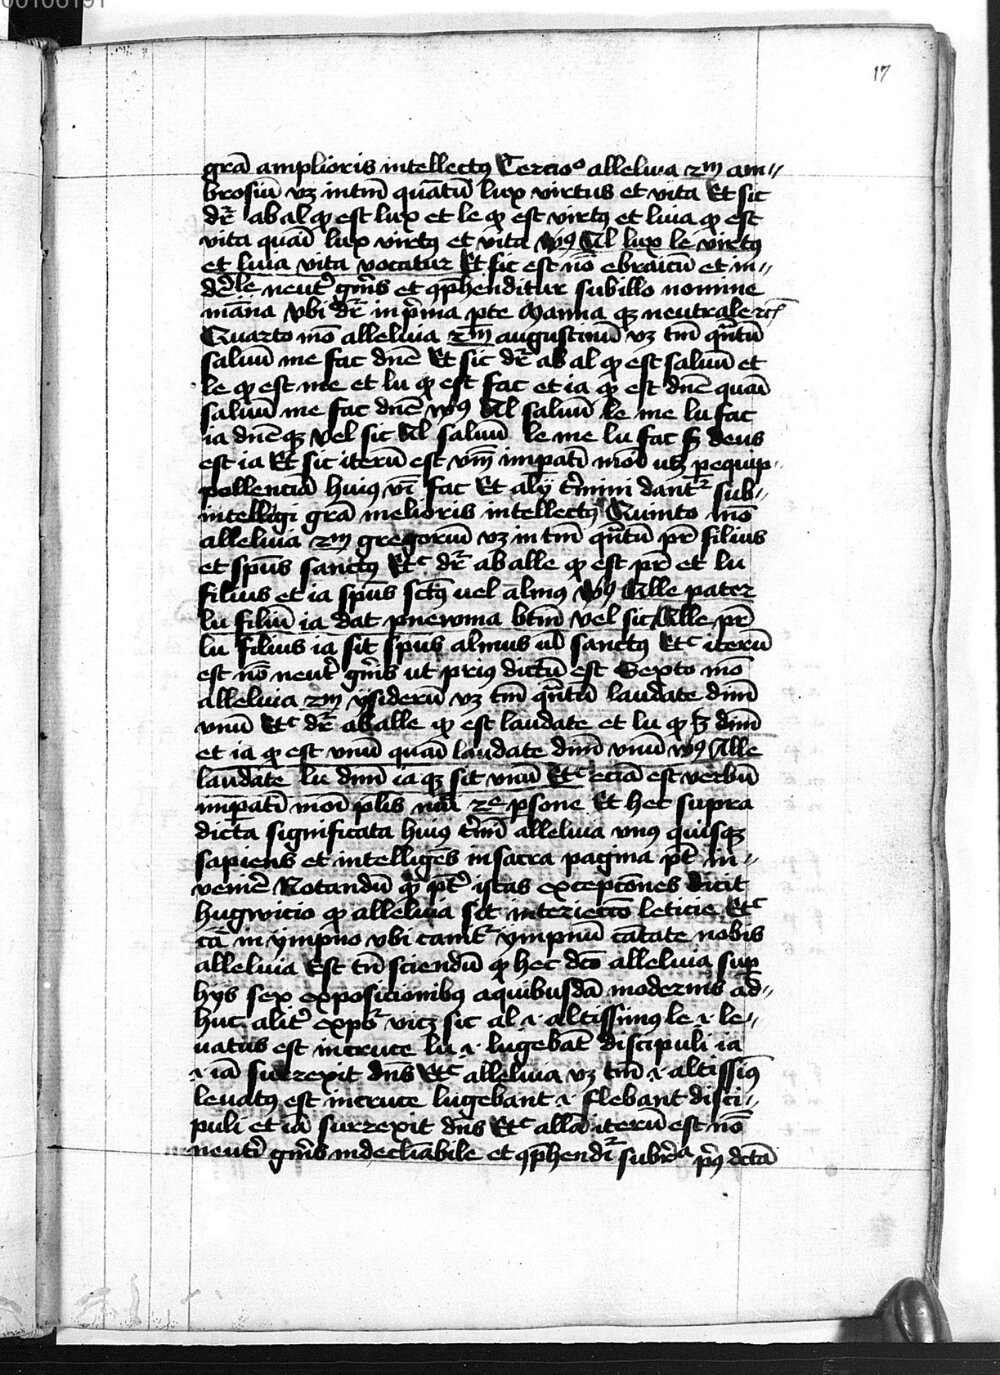 00106191
17
grā amplioris intellectꝰ Tercio alleluia 2m am〃
brosiū vꝫ intm̄ quātū lux virtus et vita Et sic
dr̄ ab al ꝙ est lux et le ꝙ est virtꝰ et luia ꝙ est
vita quasi lux virtꝰ et vita v̄sꝰ Al lux le virtꝰ
et luia vita vocatur Et sic est nō ebraicū et in〃
dec̄le neut̄ gn̄is et ꝯp̄henditur sub illo nomine
māna vbi dr̄ in p̄ma pte Manna qꝫ neutrale
Quarto mō alleluia 2m augustinū vꝫ tm̄ qn̄tū
saluū me fac dn̄e Et sic dr̄ ab al ꝙ est saluū et
le ꝙ est me et lu ꝙ est fac et ia ꝙ est dn̄e quasi
saluū me fac dn̄e v̄sꝰ Al saluū le me lu fac
ia dn̄e qꝫ vel sic Al saluū le me lu fac ꝫ deus
est ia Et sic iterū est vm̄ impati mōi pequip〃
pollenciā huiꝰ vī fac Et alij t̄mini dant̄ sub〃
intelligi grā melioris intellectꝰ Quinto mō
alleluia 2m gregoriū vꝫ in tm̄ qn̄tū pr̄ filius
et spūs sanctꝰ Etc dr̄ ab alle ꝙ est pr̄ et lu
filius et ia spūs sct̄ꝰ uel almꝰ v̄sꝰ Alle pater
lu filiū ia dat pnewma btm̄ vel sic Alle pr̄
lu filius ia sit spūs almus ul̄ sanctꝰ Etc iterū
est nō neut̄ gn̄is ut priꝰ dictū est Sexto mō
alleluia 2m ysiderū vꝫ tm̄ qn̄tū laudate dnm̄
vnū Etc dr̄ ab alle ꝙ est laudate et lu ꝙ ꝫ dnm̄
et ia ꝙ est vnū quasi laudate dnm̄ vnū v̄sꝰ Alle
laudate lu dnm̄ ia qꝫ sit vnū Etc eciā est verbū
impati mōi plīs nūi 2e psone Et hec supra
dicta significata huiꝰ t̄mī alleluia vnꝰ quisqꝫ
sapiens et intelligēs in sacra pagina pt̄ in〃
venire Notandū ꝙ pt̄ istas excepcōnes dicit
hugwicio ꝙ alleluia sit interiectio leticie Etc
in ympno vbi canit̄ ympnū cātate nobis
alleluia Est tn̄ sciendū ꝙ hec dcō alleluia sup
hys sex exposicionibꝰ a quibusdā modernis ad〃
huc alit̄ expo vicꝫ sic al .i. altissimꝰ le .i. le〃
uatus est in cruce lu .i. lugebāt discipuli ia
.i. iā surrexit dn̄s Etc alleluia vꝫ tm̄ .i. altissimꝰ
leuatꝰ est in cruce lugebant .i. flebant disci〃
puli et iā surrexit dn̄s Etc alla iterū est nō
neutri gn̄is indecliabile et ꝯp̄hendi sub pꝰ dctā